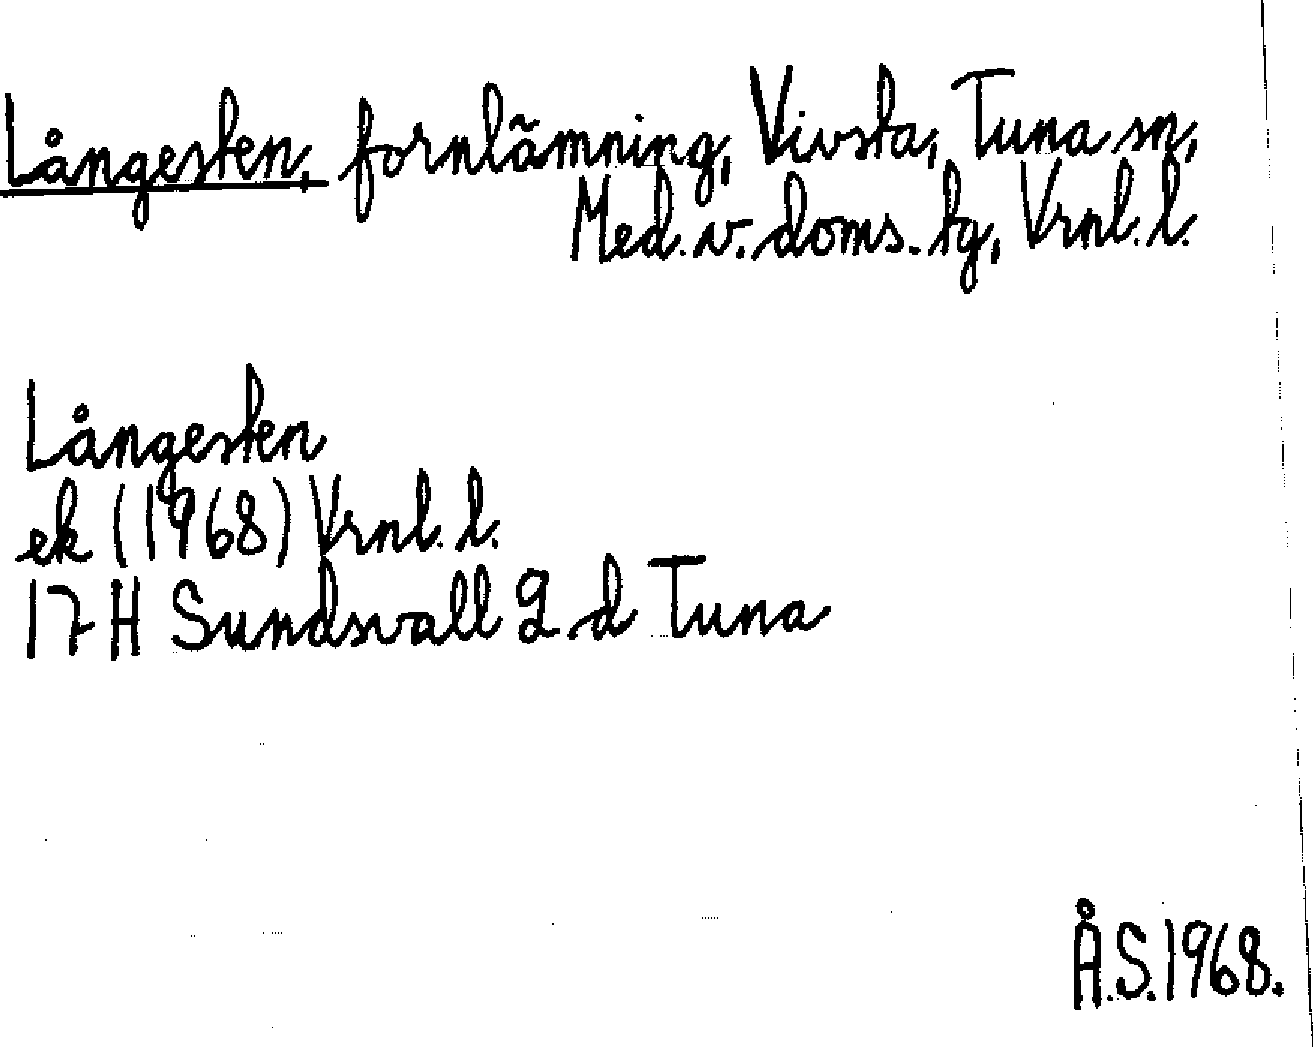 Långesten, fornlämning, Vivsta, Tuna sn,
Med. v. doms. tg, Vrnl. l.
Långesten
ek (1968) Vrnl. l.
17 H Sundsvall 9 d Tuna
Å.S. 1968.